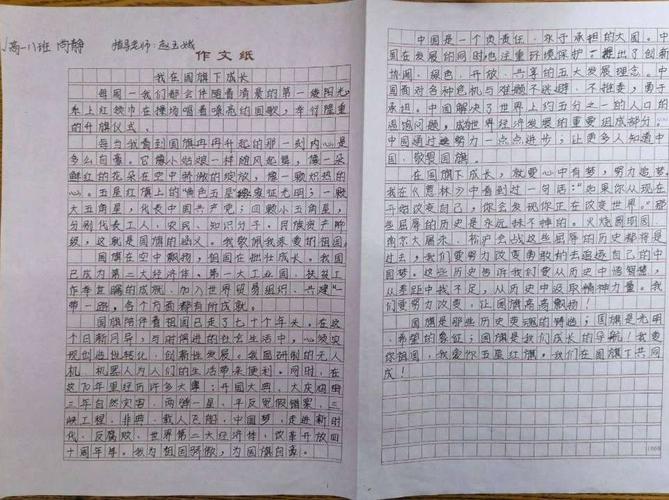 高一八班 尚静 指导老师:赵玉娥
作文纸
我在国旗下成长
每周一我们都会伴随着清晨的第一缕阳光
系上红领巾在操场唱着嘹亮的国歌,举行隆重
的升旗仪式。
每当我看到国旗冉冉升起的那一刻内心是
多么自豪。它像小姑娘一样随风起舞,像一朵
鲜红的花朵在空中骄傲的绽放,像一颗炽热的
心。五星红旗上的"黄色五星"象征光明;一颗
大五角星,代表中国共产党;四颗小五角星,
分别代表工人、农民、知识分子、民族资产阶
级,这就是国旗的涵义。我敬佩我亲爱的祖国
国旗在空中飘扬,祖国在茁壮成长。我国
已成为第二大经济体。第一大工业国,扶贫工
作举世瞩的成就,加入世界贸易组织,共建"一
带一路,各个方面都有所成就。
国旗陪伴着祖国已走了七十个年头。在这
个日新月异,与时俱进的社会生活中,心须实
现创造性转化,创新性发展。我国研制的无人
机,机器人为人们的生活带来便利。同时,在
这70年里经历许多大事:开国大典,大庆油田
三年自然灾害,两弹一星,平反冤假错案,三
峡工程,非典,载人飞船,中国梦,走进新时
代,反腐败,世界第二大经济体,改革开放四
十周年等。我为祖国骄傲,为国旗自豪。
中国是一个负责任,永于承担的大国。中
国在发展的同时也注重环境保护,提出了创新
协调、绿色、开放、共享的五大发展理念。中
国面对各种危机与难题不逃避、不推卸,勇于
承担。中国解决了世界上约五分之一的人口的
温饱问题,成世界经济发展的重要组成部分。
中国通过努力一点点进步,让更多人知道中
国,敬畏国旗。
在国旗下成长,就要心中有梦,努力追梦。
我在《意林》中看到过一句话:"如果你从现在
开始改变自己,你会发现你正在改变世界。"那
些屈辱的历史是永远抹不掉的。火烧圆明园、
南京大屠杀、淞沪会战这些屈辱的历史都将是
过去,我们要努力改变勇敢的去追逐自己的中
国梦。这些历史告诉我们要从历史中请智慧,
从差距中找不足,从历史中汲取精神力量。我
们要努力改变,让国旗高高飘扬!
国旗是那些历史英魂的铸造;国旗是光明
、希望的象征;国旗是我们成长的导航!我爱
你祖国,我爱你五星红旗。我们在国旗下共同
庆!